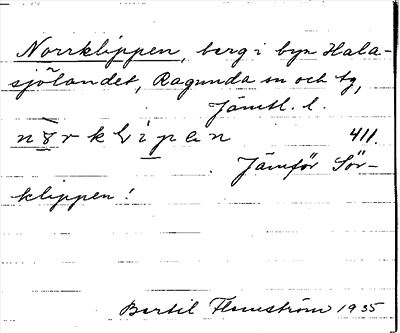 Norrklippen, berg i byn Hala-
sjölandet, Ragunda sn och tg,
Jämtl. l.
411.
Jämför Sör-
klippen!
Bertil Flemström 1935